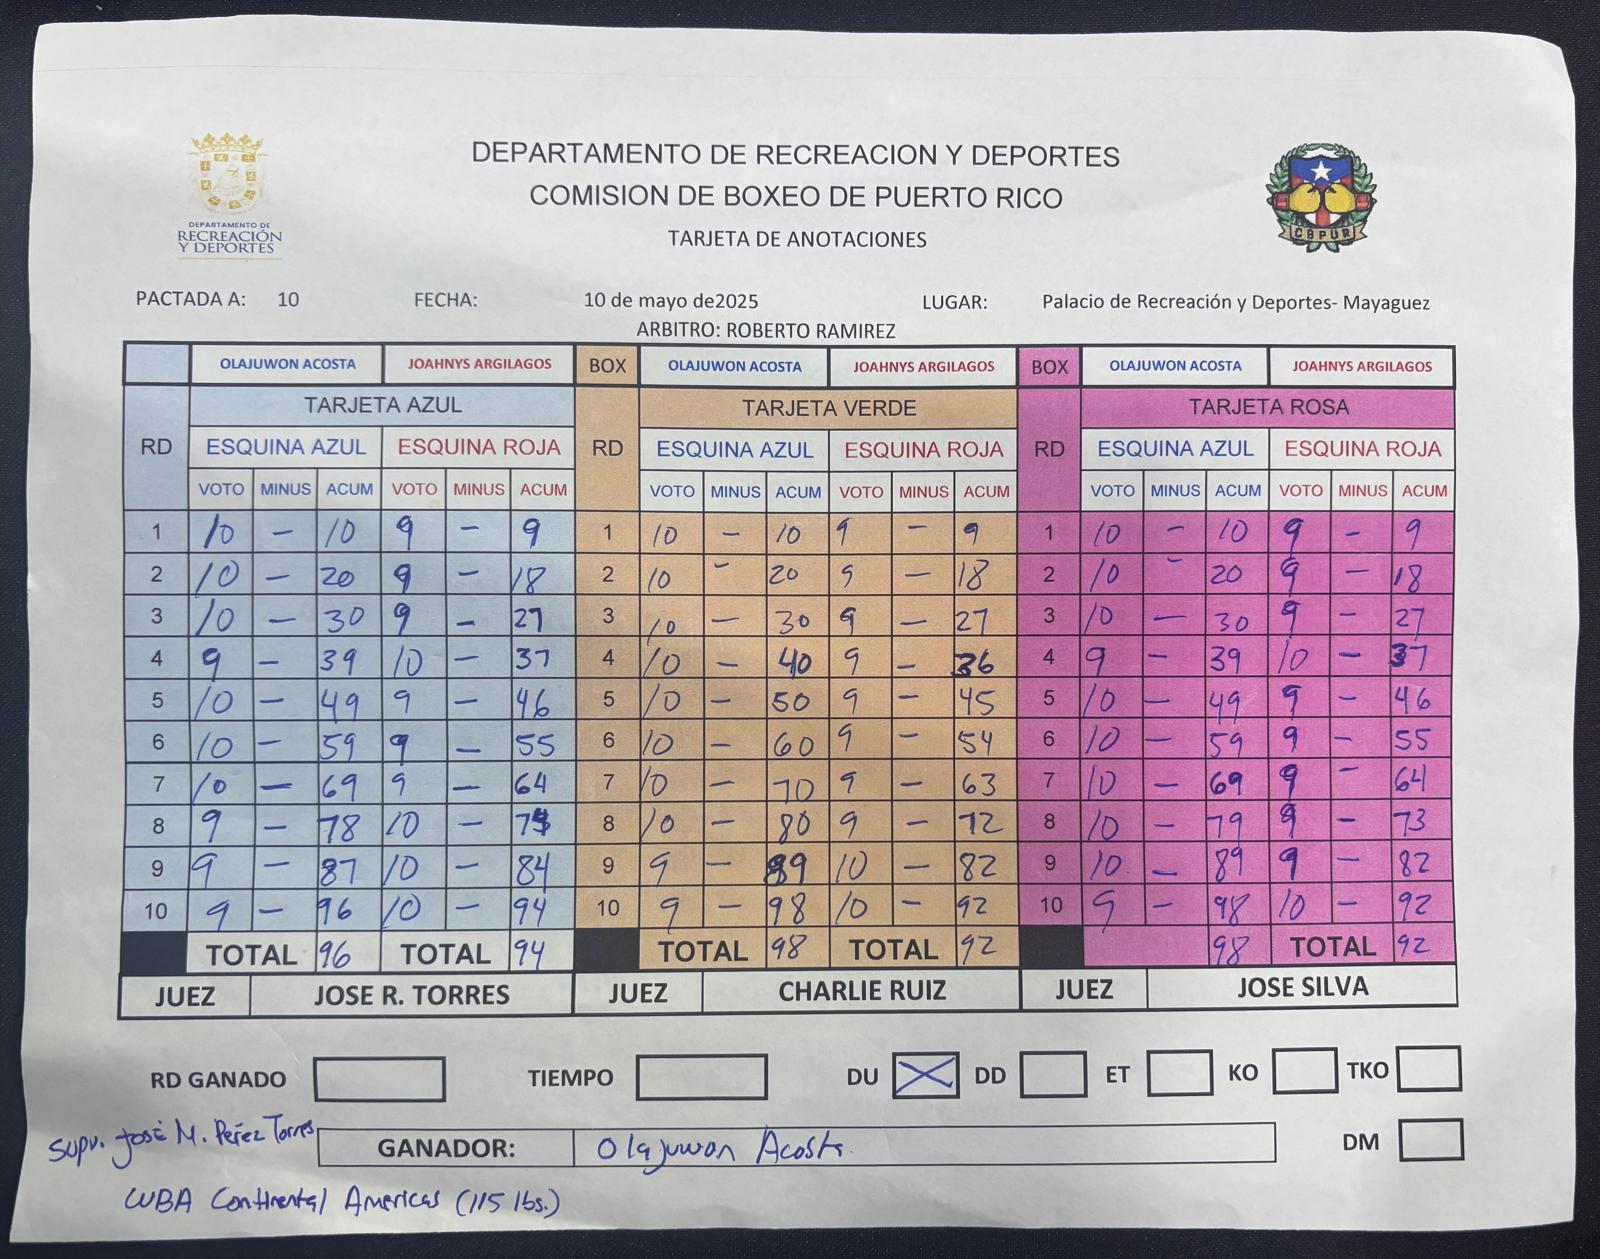 DEPARTAMENTO DE RECREACION Y DEPORTES
COMISION DE BOXEO DE PUERTO RICO
TARJETA DE ANOTACIONES
DEPARTAMENTO DE
RECREACIÓN
Y DEPORTES
CBPUR
PACTADA A: 10 FECHA: 10 de mayo de2025 LUGAR: Palacio de Recreación y Deportes- Mayaguez
ARBITRO: ROBERTO RAMIREZ
OLAJUWON ACOSTA JOAHNYS ARGILAGOS BOX OLAJUWON ACOSTA JOAHNYS ARGILAGOS BOX OLAJUWON ACOSTA JOAHNYS ARGILAGOS
RD TARJETA AZUL RD TARJETA VERDE RD TARJETA ROSA
ESQUINA AZUL ESQUINA ROJA ESQUINA AZUL ESQUINA ROJA ESQUINA AZUL ESQUINA ROJA
VOTO MINUS ACUM VOTO MINUS ACUM VOTO MINUS ACUM VOTO MINUS ACUM VOTO MINUS ACUM VOTO MINUS ACUM
1 10 – 10 9 – 9 1 10 – 10 9 – 9 1 10 – 10 9 – 9
2 10 – 20 9 – 18 2 10 – 20 9 – 18 2 10 – 20 9 – 18
3 10 – 30 9 – 27 3 10 – 30 9 – 27 3 10 – 30 9 – 27
4 9 – 39 10 – 37 4 10 – 40 9 – 36 4 9 – 39 10 – 37
5 10 – 49 9 – 46 5 10 – 50 9 – 45 5 10 – 49 9 – 46
6 10 – 59 9 – 55 6 10 – 60 9 – 54 6 10 – 59 9 – 55
7 10 – 69 9 – 64 7 10 – 70 9 – 63 7 10 – 69 9 – 64
8 9 – 78 10 – 74 8 10 – 80 9 – 72 8 10 – 79 9 – 73
9 9 – 87 10 – 84 9 9 – 89 10 – 82 9 10 – 89 9 – 82
10 9 – 96 10 – 94 10 9 – 98 10 – 92 10 9 – 98 10 – 92
TOTAL 96 TOTAL 94 TOTAL 98 TOTAL 92 98 TOTAL 92
JUEZ JOSE R. TORRES JUEZ CHARLIE RUIZ JUEZ JOSE SILVA
RD GANADO TIEMPO DU X DD ET KO TKO
Supv. José M. Peréz Torres
GANADOR: Olajuwon Acosta DM
WBA Continental Americas (115 lbs.)